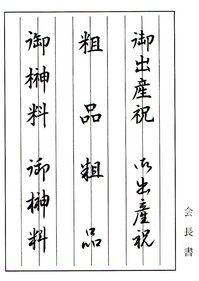 御出産祝 御出産祝
粗品 粗品
御榊料 御榊料
会長書